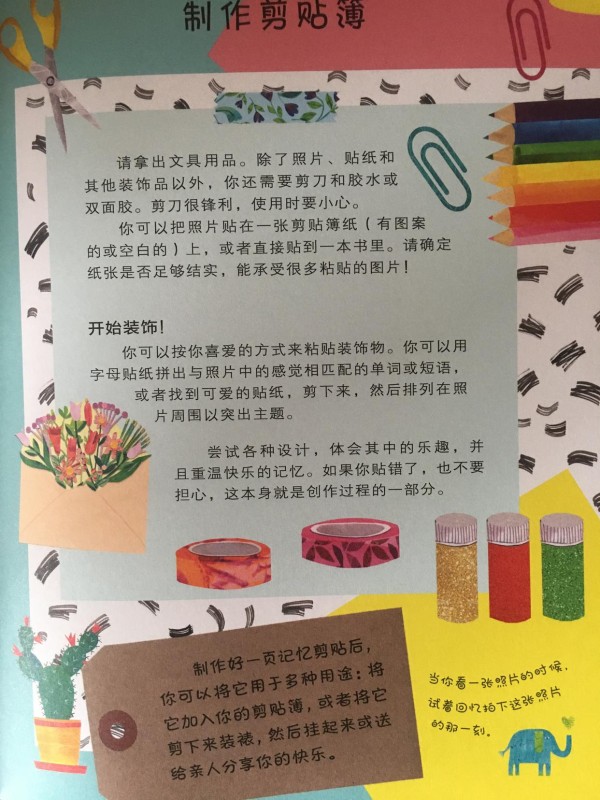 制作剪贴簿
请拿出文具用品。除了照片、贴纸和
其他装饰品以外，你还需要剪刀和胶水或
双面胶。剪刀很锋利，使用时要小心。
你可以把照片贴在一张剪贴簿纸（有图案
的或空白的）上，或者直接贴到一本书里。请确定
纸张是否足够结实，能承受很多粘贴的图片！
开始装饰！
你可以按你喜爱的方式来粘贴装饰物。你可以用
字母贴纸拼出与照片中的感觉相匹配的单词或短语，
或者找到可爱的贴纸，剪下来，然后排列在照
片周围以突出主题。
尝试各种设计，体会其中的乐趣，并
且重温快乐的记忆。如果你贴错了，也不要
担心，这本身就是创作过程的一部分。
制作好一页记忆剪贴后，
你可以将它用于多种用途：将
它加入你的剪贴簿，或者将它
剪下来装裱，然后挂起来或送
给亲人分享你的快乐。
当你看一张照片的时候，
试着回忆拍下这张照片
的那一刻。